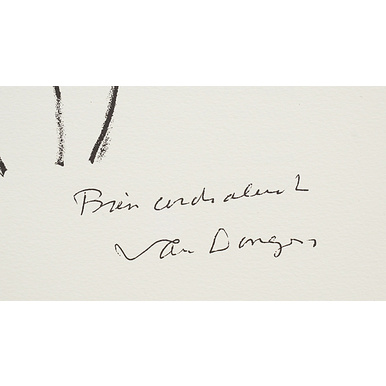 Bien cordialement
Van Dongen